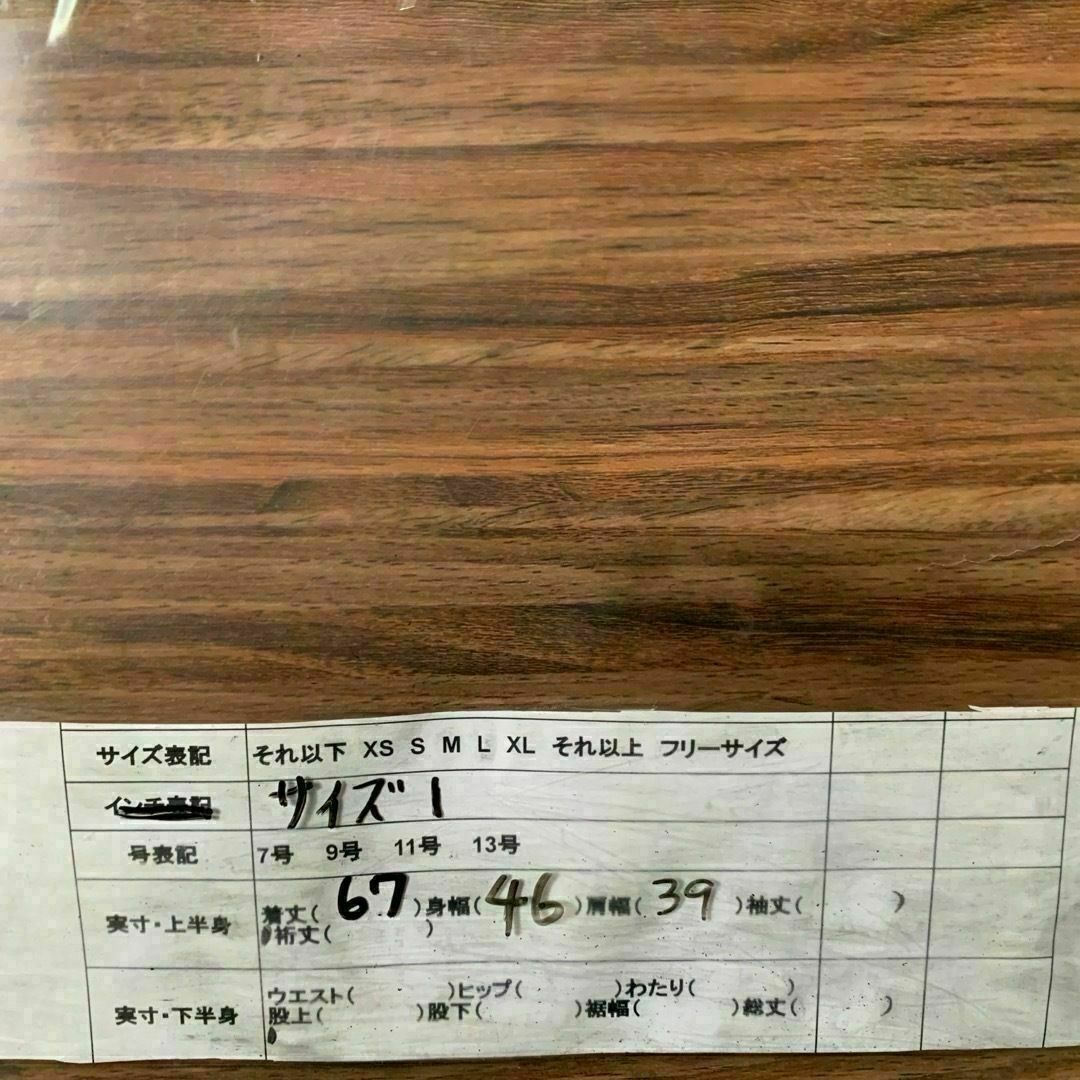 サイズ表記 それ以下 XS S M L XL それ以上 フリーサイズ
インチ表記 サイズ 1
号表記 7号 9号 11号 13号
実寸・上半身 着丈( 67 )身幅( 46 )肩幅( 39 )袖丈( )
裄丈( )
実寸・下半身 ウエスト( )ヒップ( )わたり( )
股上( )股下( )裾幅( )総丈( )